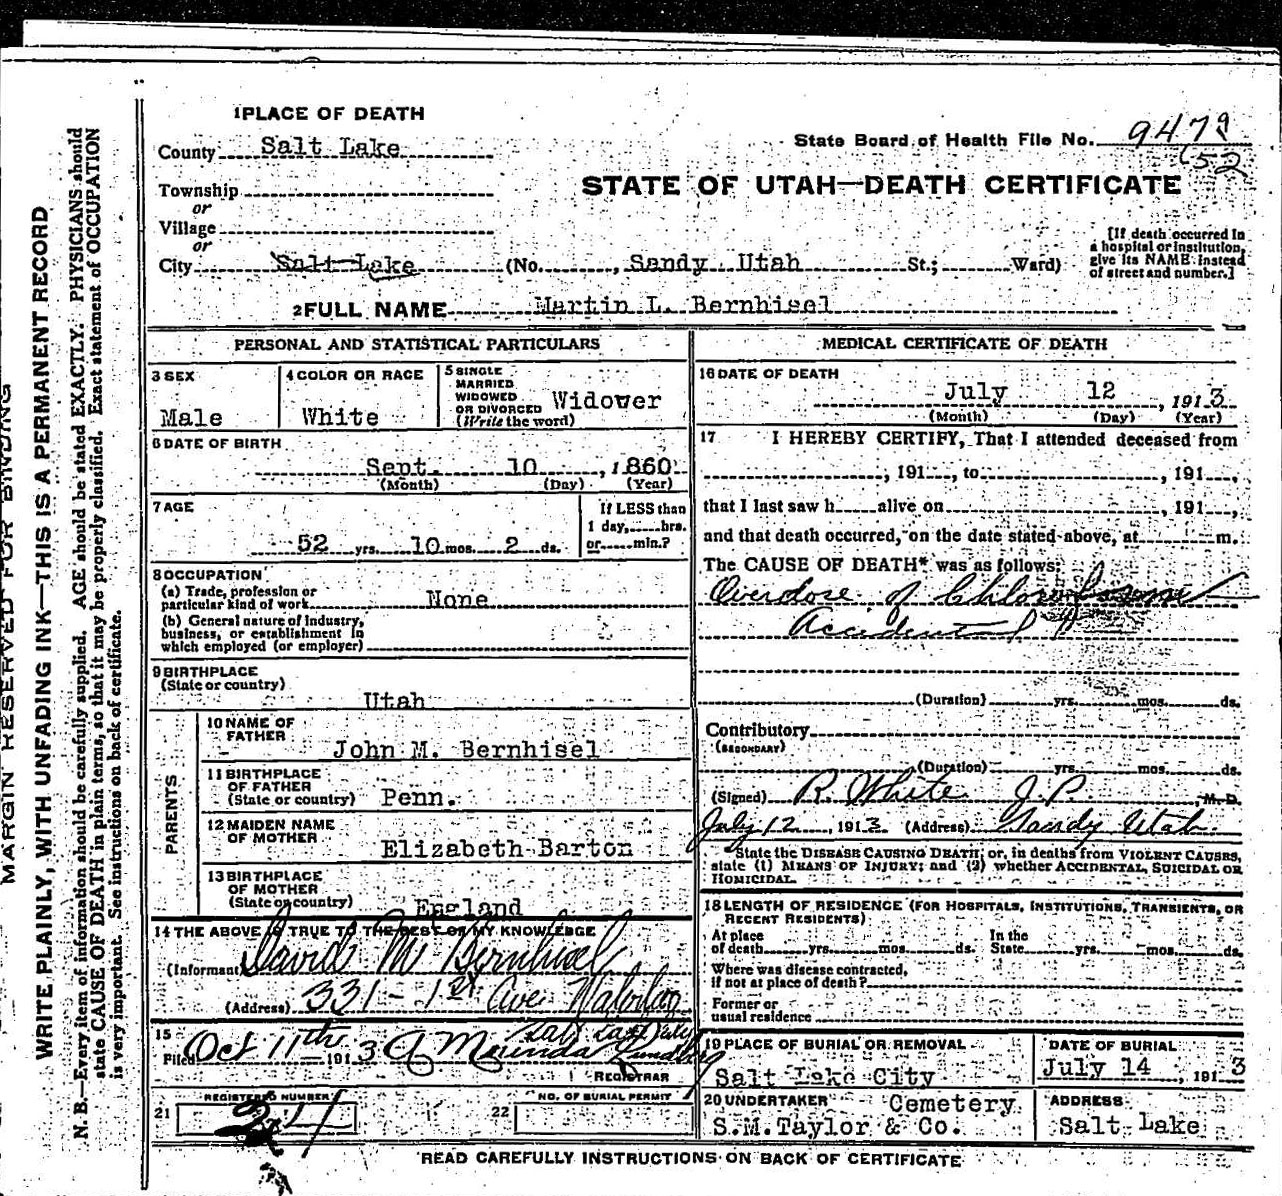 1 PLACE OF DEATH
County Salt Lake
State Board of Health File No. 9479
52
Township
or
Village
or
STATE OF UTAH—DEATH CERTIFICATE
City Salt Lake (No. , Sandy Utah St.; Ward)
[If death occurred in
a hospital or institution,
give its NAME instead
of street and number.]
2 FULL NAME Martin L. Bernhisel
PERSONAL AND STATISTICAL PARTICULARS
3 SEX
Male
4 COLOR OR RACE
White
5 SINGLE
MARRIED
WIDOWED
OR DIVORCED
(Write the word)
Widower
6 DATE OF BIRTH
Sept. 10 , 1860
(Month) (Day) (Year)
7 AGE
52 yrs. 10 mos. 2 ds.
If LESS than
1 day, hrs.
or min.?
8 OCCUPATION
(a) Trade, profession or
particular kind of work None
(b) General nature of Industry,
business, or establishment in
which employed (or employer)
9 BIRTHPLACE
(State or country)
Utah
PARENTS
10 NAME OF
FATHER
John M. Bernhisel
11 BIRTHPLACE
OF FATHER
(State or country) Penn.
12 MAIDEN NAME
OF MOTHER
Elizabeth Barton
13 BIRTHPLACE
OF MOTHER
(State or country)
England
14 THE ABOVE IS TRUE TO THE BEST OF MY KNOWLEDGE
(Informant) David M. Bernhisel
(Address) 331 - 1st Ave
15
Filed Oct 11th 1913
REGISTRAR
REGISTERED NUMBER
21
NO. OF BURIAL PERMIT
22
MEDICAL CERTIFICATE OF DEATH
16 DATE OF DEATH
July 12 , 1913
(Month) (Day) (Year)
17 I HEREBY CERTIFY, That I attended deceased from
, 191 , to , 191 ,
that I last saw h alive on , 191 ,
and that death occurred, on the date stated above, at m.
The CAUSE OF DEATH* was as follows:
Overdose of Chloroform
Accidental
(Duration) yrs. mos. ds.
Contributory
(SECONDARY)
(Duration) yrs. mos. ds.
(Signed) R. White J.P. , M.D.
July 12 , 1913 (Address) Sandy Utah.
*State the DISEASE CAUSING DEATH, or, in deaths from VIOLENT CAUSES,
state (1) MEANS OF INJURY; and (2) whether ACCIDENTAL, SUICIDAL OR
HOMICIDAL.
18 LENGTH OF RESIDENCE (FOR HOSPITALS, INSTITUTIONS, TRANSIENTS, OR
RECENT RESIDENTS)
At place
of death yrs. mos. ds.
In the
State yrs. mos. ds.
Where was disease contracted,
if not at place of death?
Former or
usual residence
19 PLACE OF BURIAL OR REMOVAL
Salt Lake City
Cemetery
DATE OF BURIAL
July 14 , 1913
20 UNDERTAKER
S.M.Taylor & Co.
ADDRESS
Salt Lake
READ CAREFULLY INSTRUCTIONS ON BACK OF CERTIFICATE
MARGIN RESERVED FOR BINDING
WRITE PLAINLY, WITH UNFADING INK—THIS IS A PERMANENT RECORD
N. B.—Every item of information should be carefully supplied. AGE should be stated EXACTLY. PHYSICIANS should
state CAUSE OF DEATH in plain terms, so that it may be properly classified. Exact statement of OCCUPATION
is very important. See instructions on back of certificate.